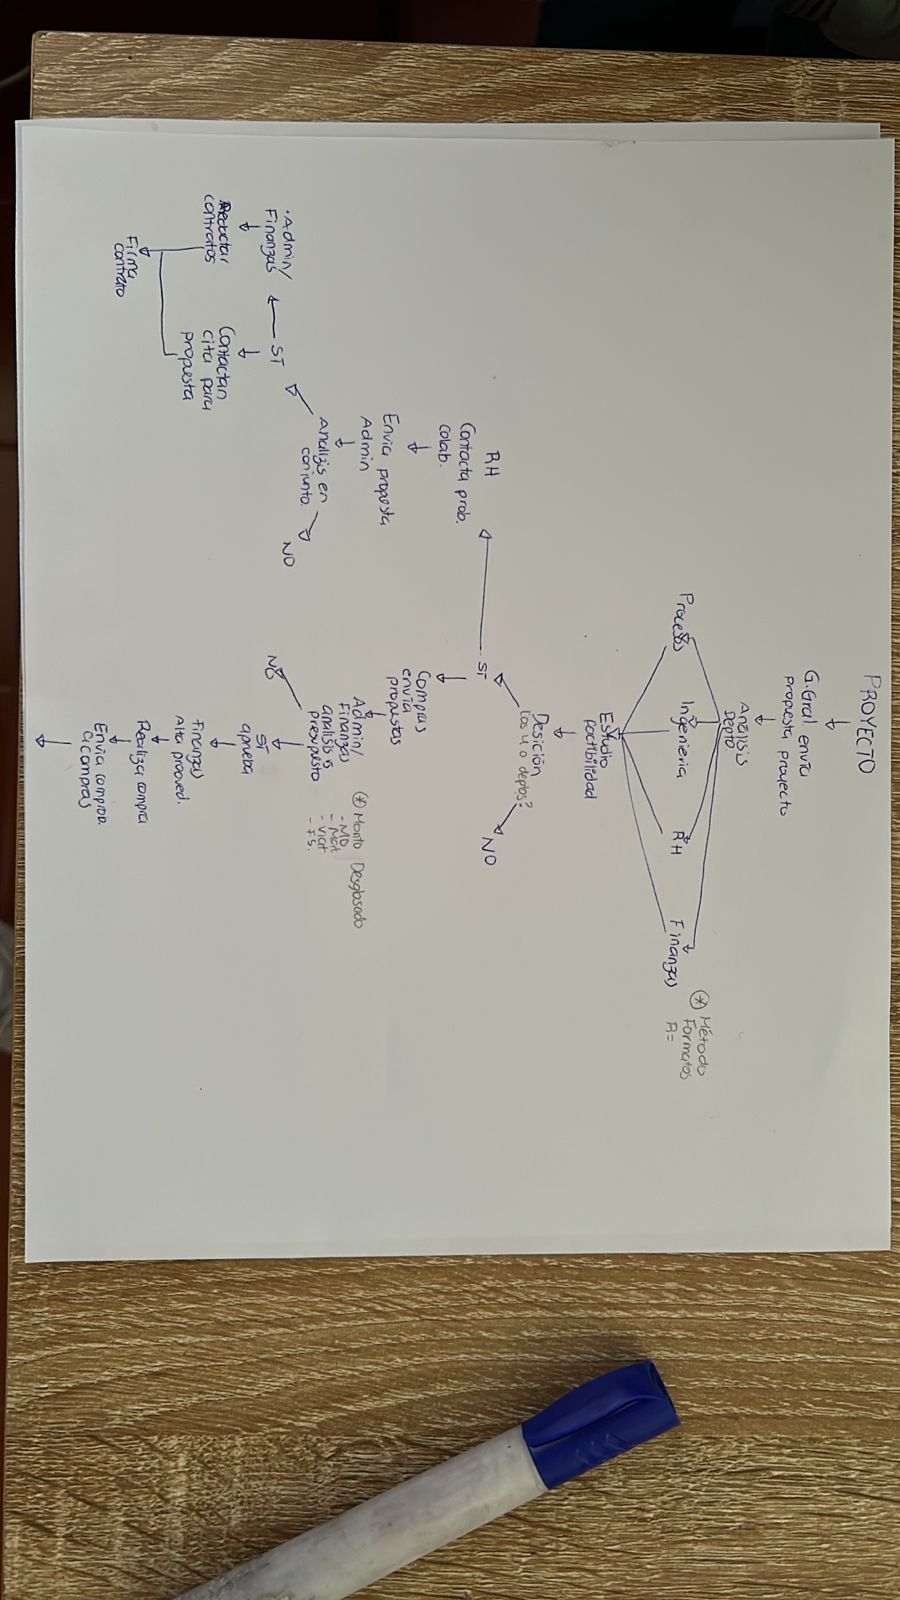 PROYECTO
G.Gral. envía
propuesta proyecto
Análisis
Depto.
Procesos
Ingenieria
RH
Finanzas
* Método
Formatos
R=
Estudio
factibilidad
Desición
Los 4 o deptos?
SÍ
NO
RH
Contacta prob.
colab.
Envia propuesta
Admin
Analizis en
conjunto.
NO
SÍ
·Admin/
Finanzas
Redactar
contratos
Contactan
cita para
propuesta
Firma
contrato
Compras
envía
propuestas
Admin/
Finanzas
analisis vs
presupuesto
* Monto Desglosado
- MO.
- Mat.
- Viat.
- F.S.
NO
SÍ
aprueba
Finanzas
Alta prooved.
Realiza compra
Envia comprob.
a compras